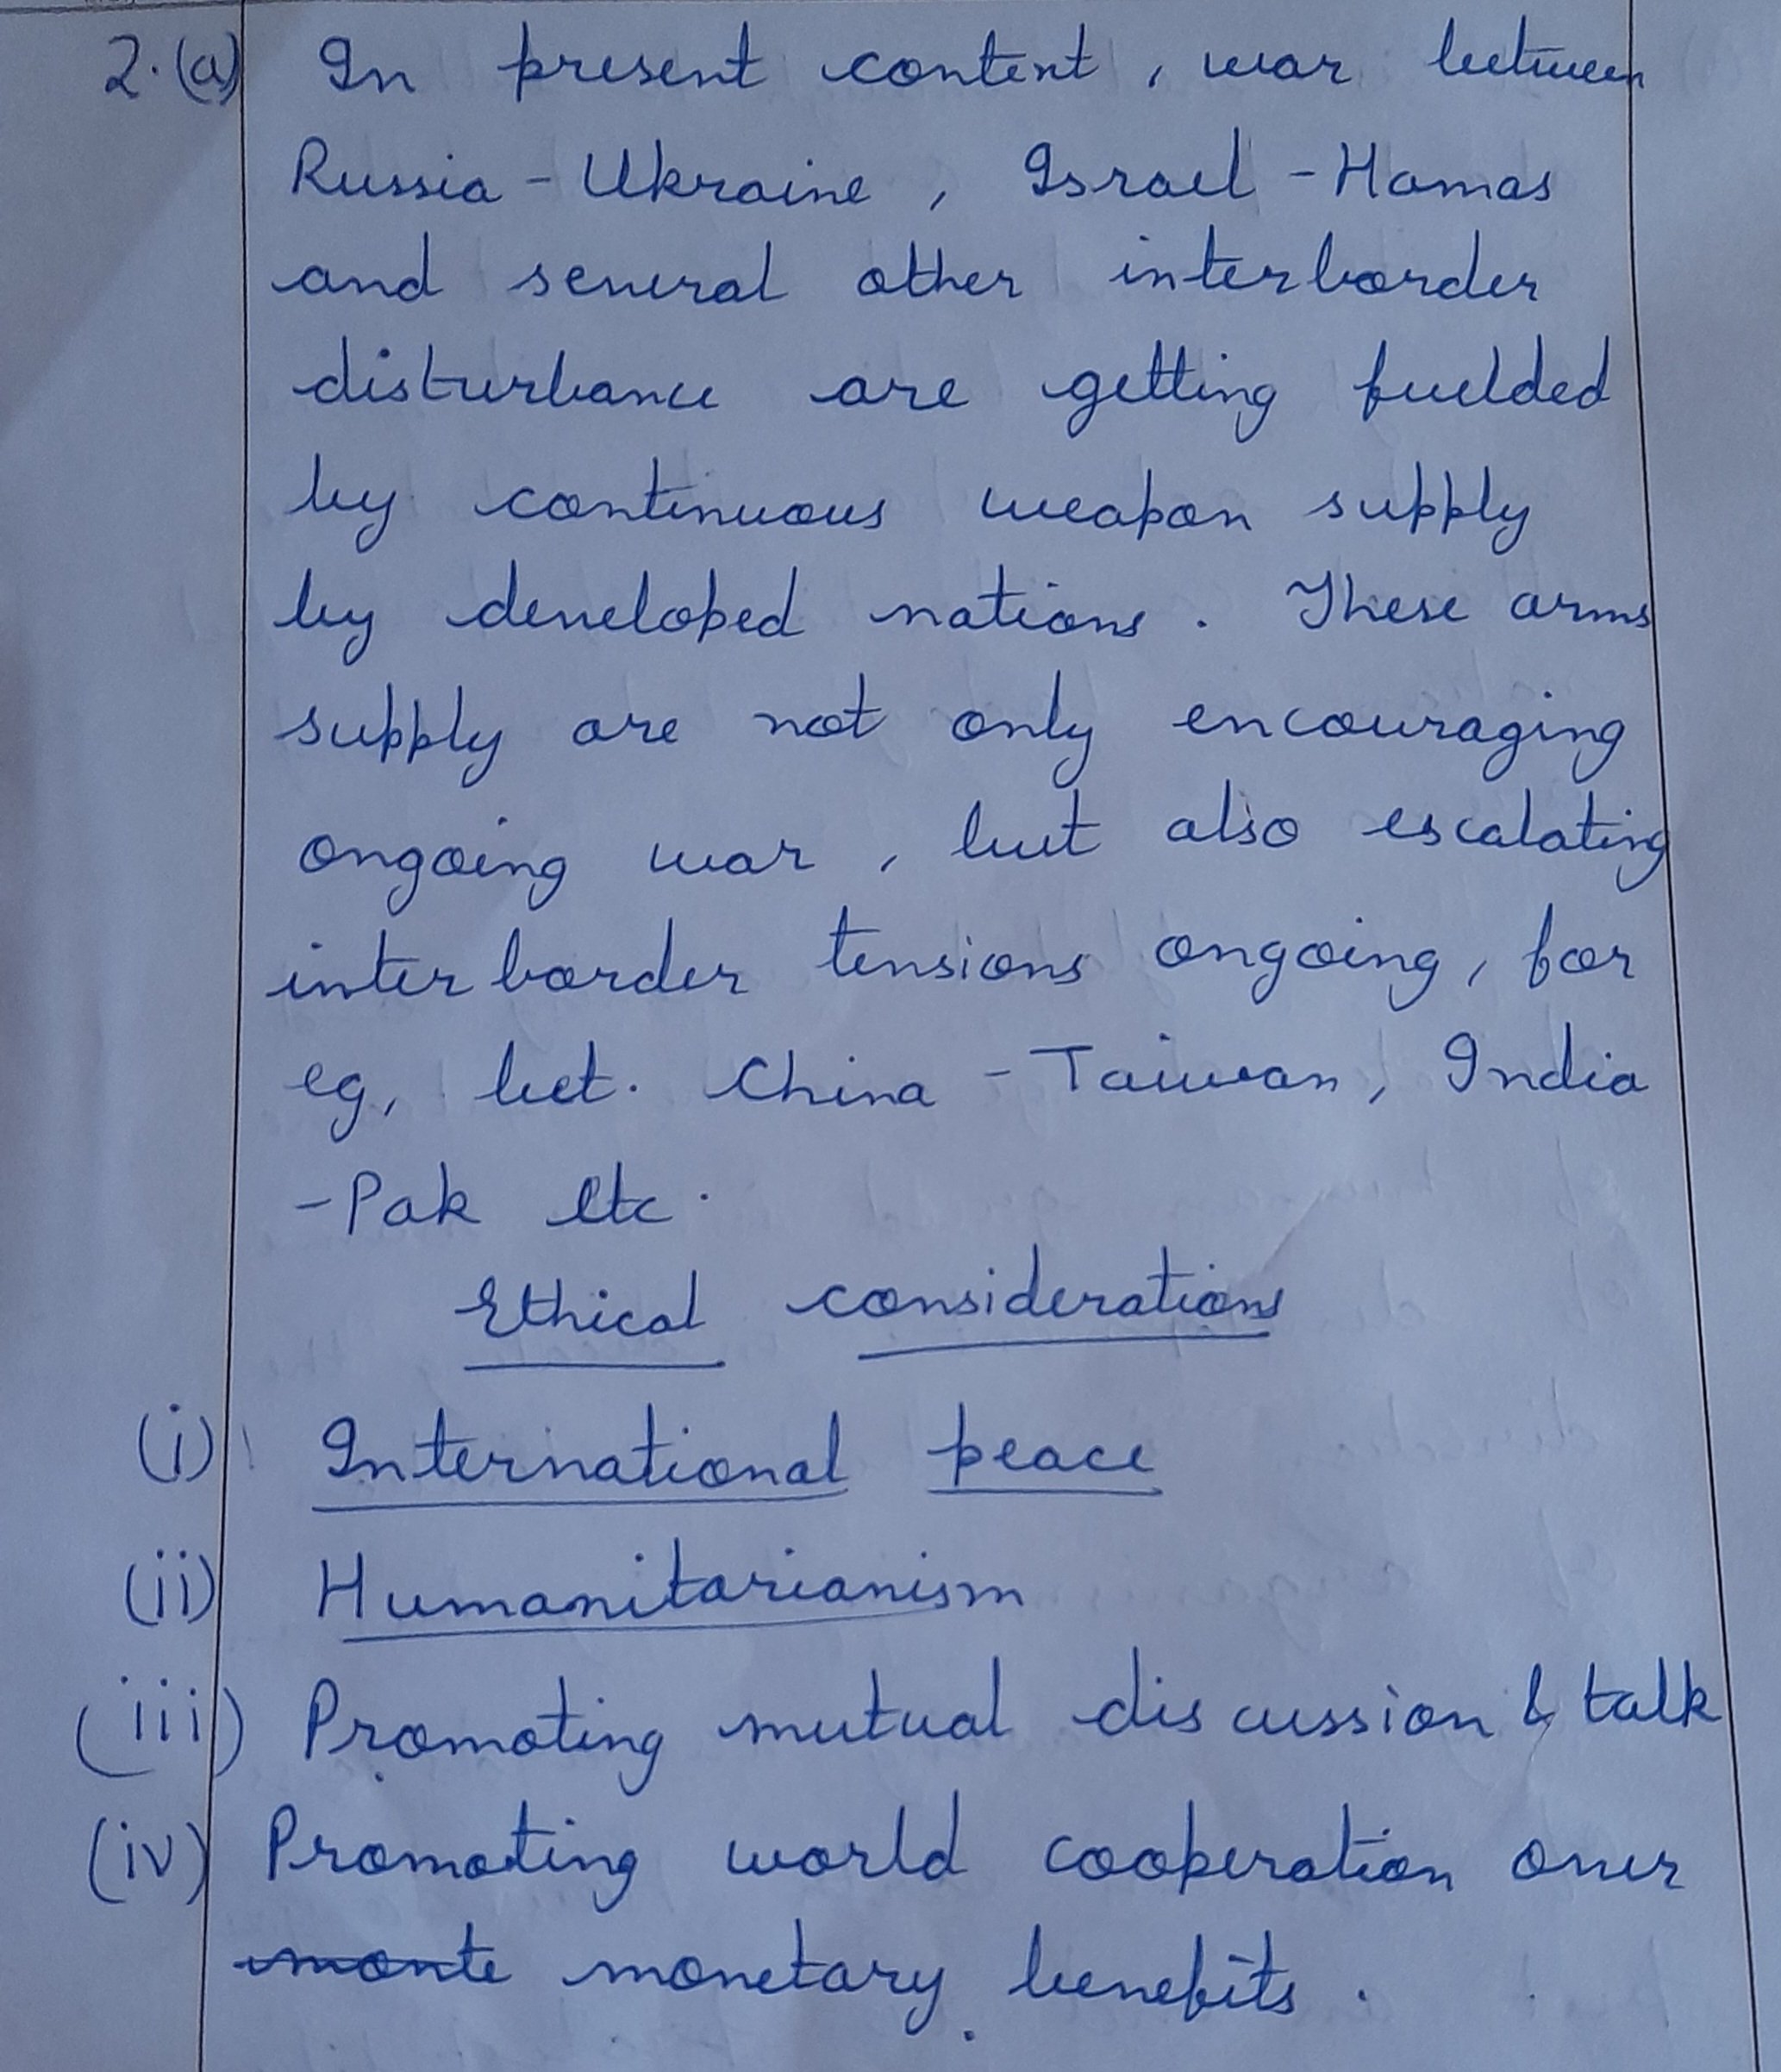 2.(a) In present content, war between
Russia - Ukraine, Israel - Hamas
and several other interborder
disturbance are getting fuelded
by continuous weapon supply
by developed nations. These arms
supply are not only encouraging
ongoing war, but also escalating
inter border tensions ongoing, for
eg, bet. China - Taiwan, India
- Pak etc.
Ethical considerations
(i) International peace
(ii) Humanitarianism
(iii) Promoting mutual discussion & talk
(iv) Promoting world cooperation over
monte monetary benefits.